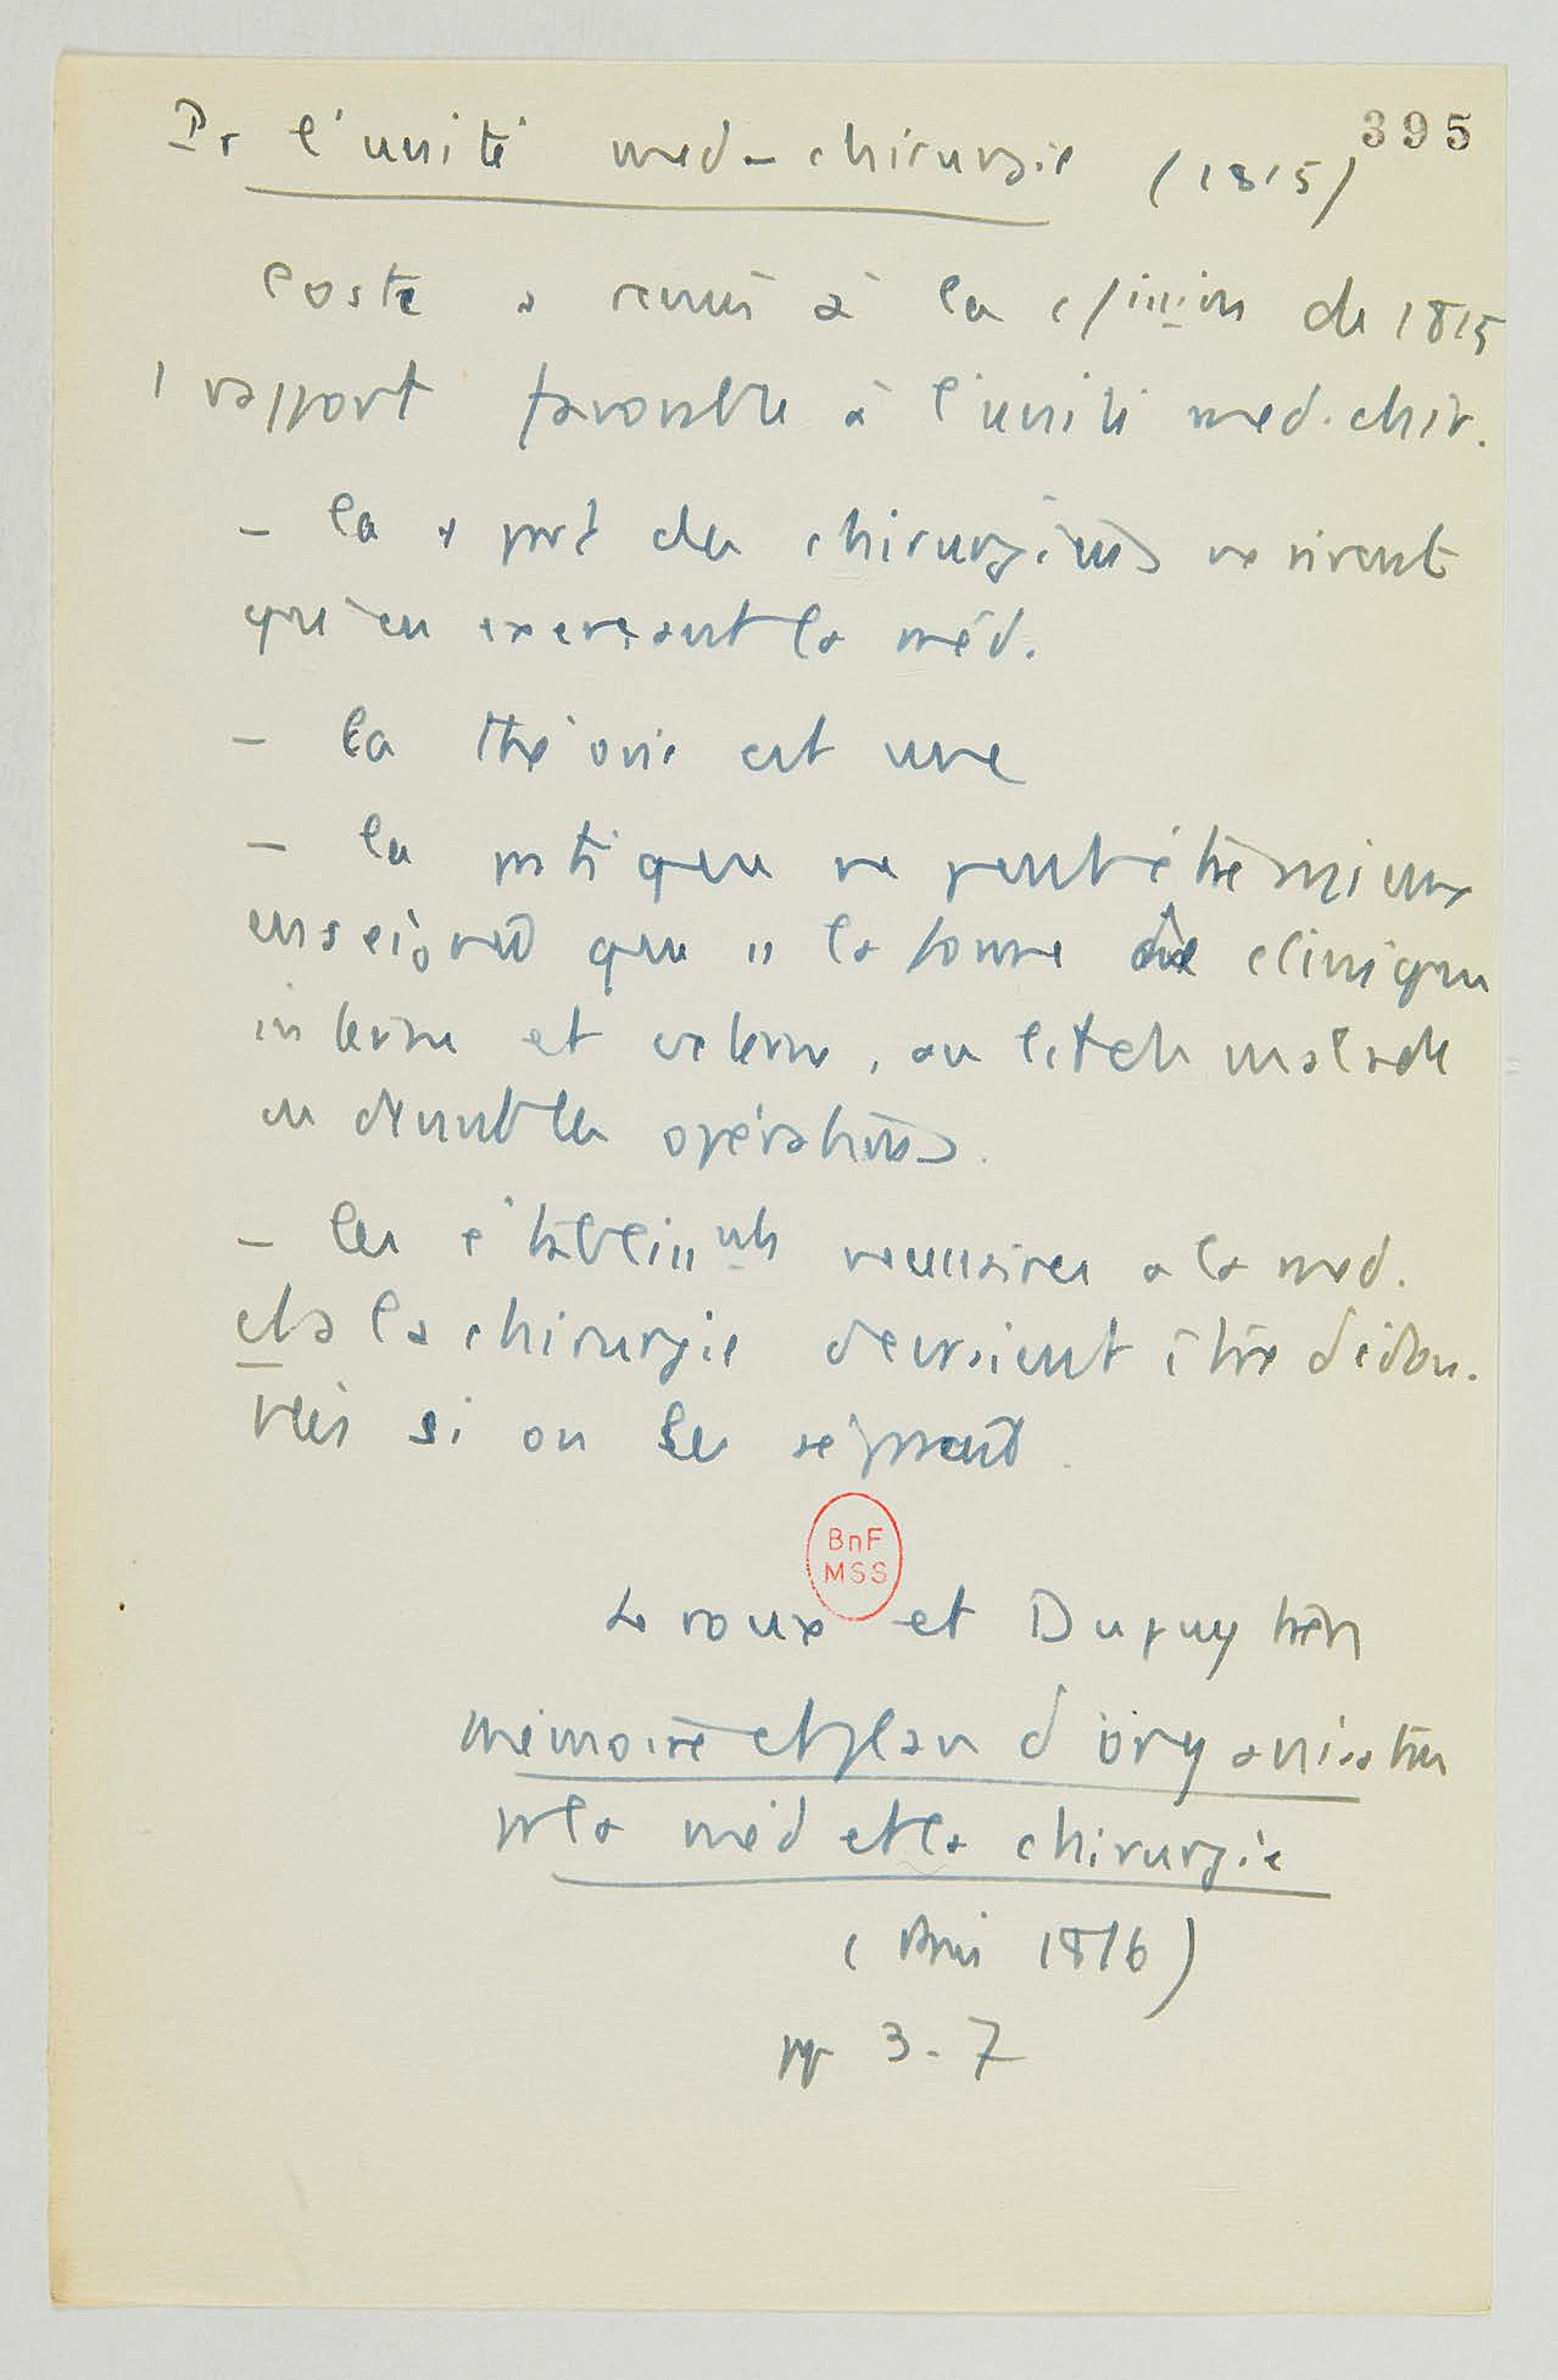 395
Pr l'unité med-chirurgie (1815)
Coste a remis à la c/ission de 1815
1 rapport favorable à l'unité med. chir.
- la + part des chirurgiens ne vivent
qu'en exerçant la méd.
- la théorie est une
- la pratique ne peut être mieux
enseignée que ss la forme de clinique
interne et externe, au lit du malade
en dvnt les opérations.
- les établissmts nécessaires a la med.
et à la chirurgie devraient être dédou-
blés si on les séparait.
BnF
MSS
Leroux et Dupuytren
Mémoire et plan d'organisation
pr la méd et la chirurgie
(Paris 1816)
pp 3-7